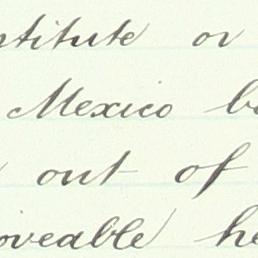 ntitute or
Mexico b
out of
oveable he